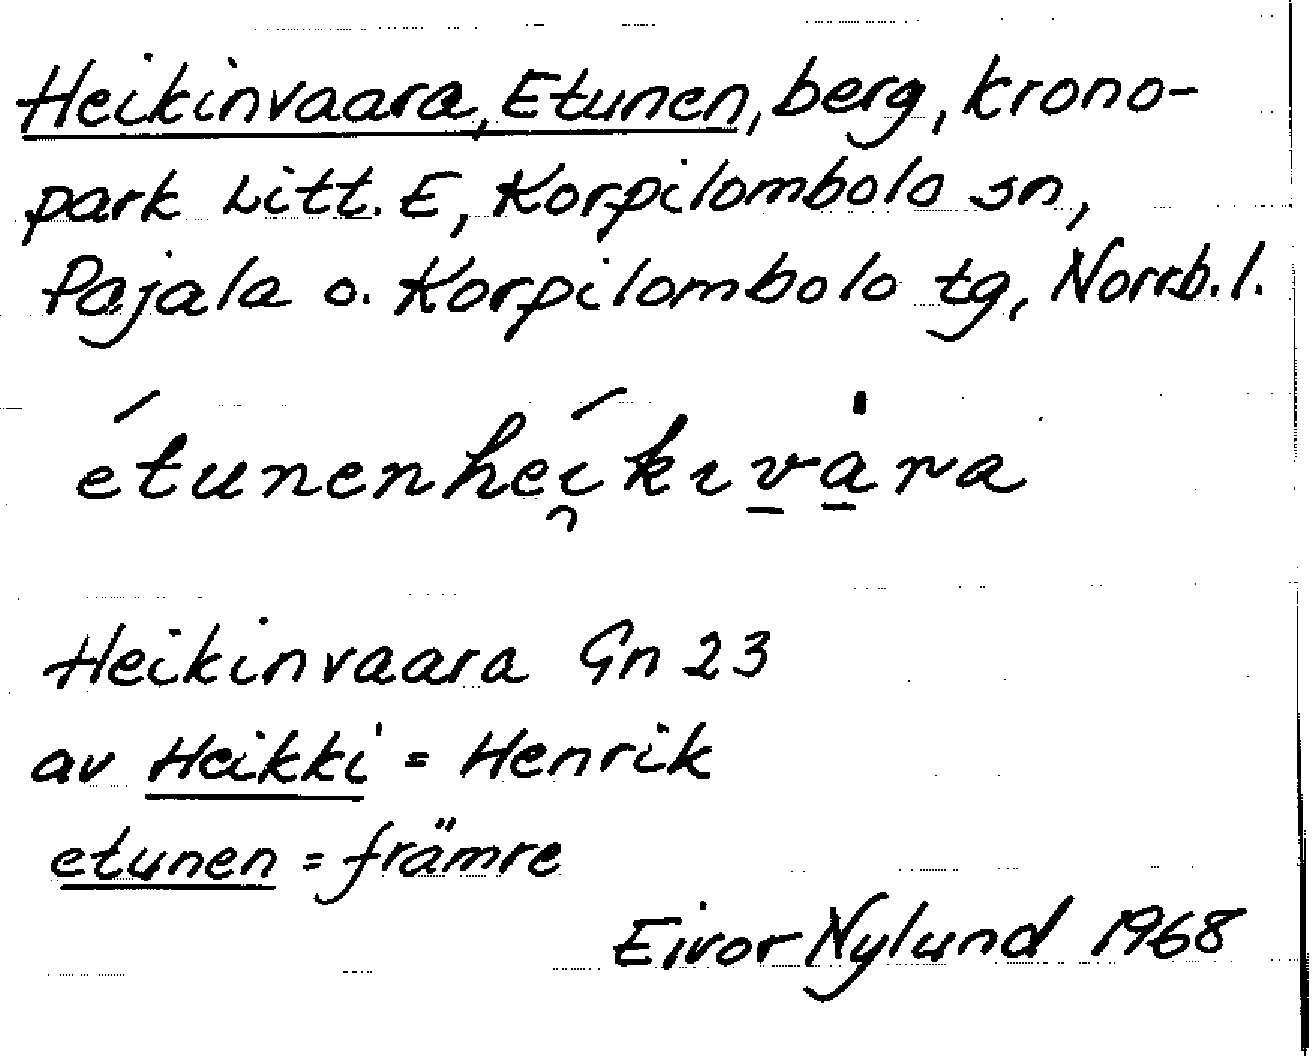 Heikinvaara, Etunen, berg, krono-
park Litt. E, Korpilombolo sn,
Pajala o. Korpilombolo tg, Norrb.l.
étunenhei̯kɪv̲a̲ra
Heikinvaara Gn 23
av Heikki = Henrik
etunen = främre
Eivor Nylund 1968